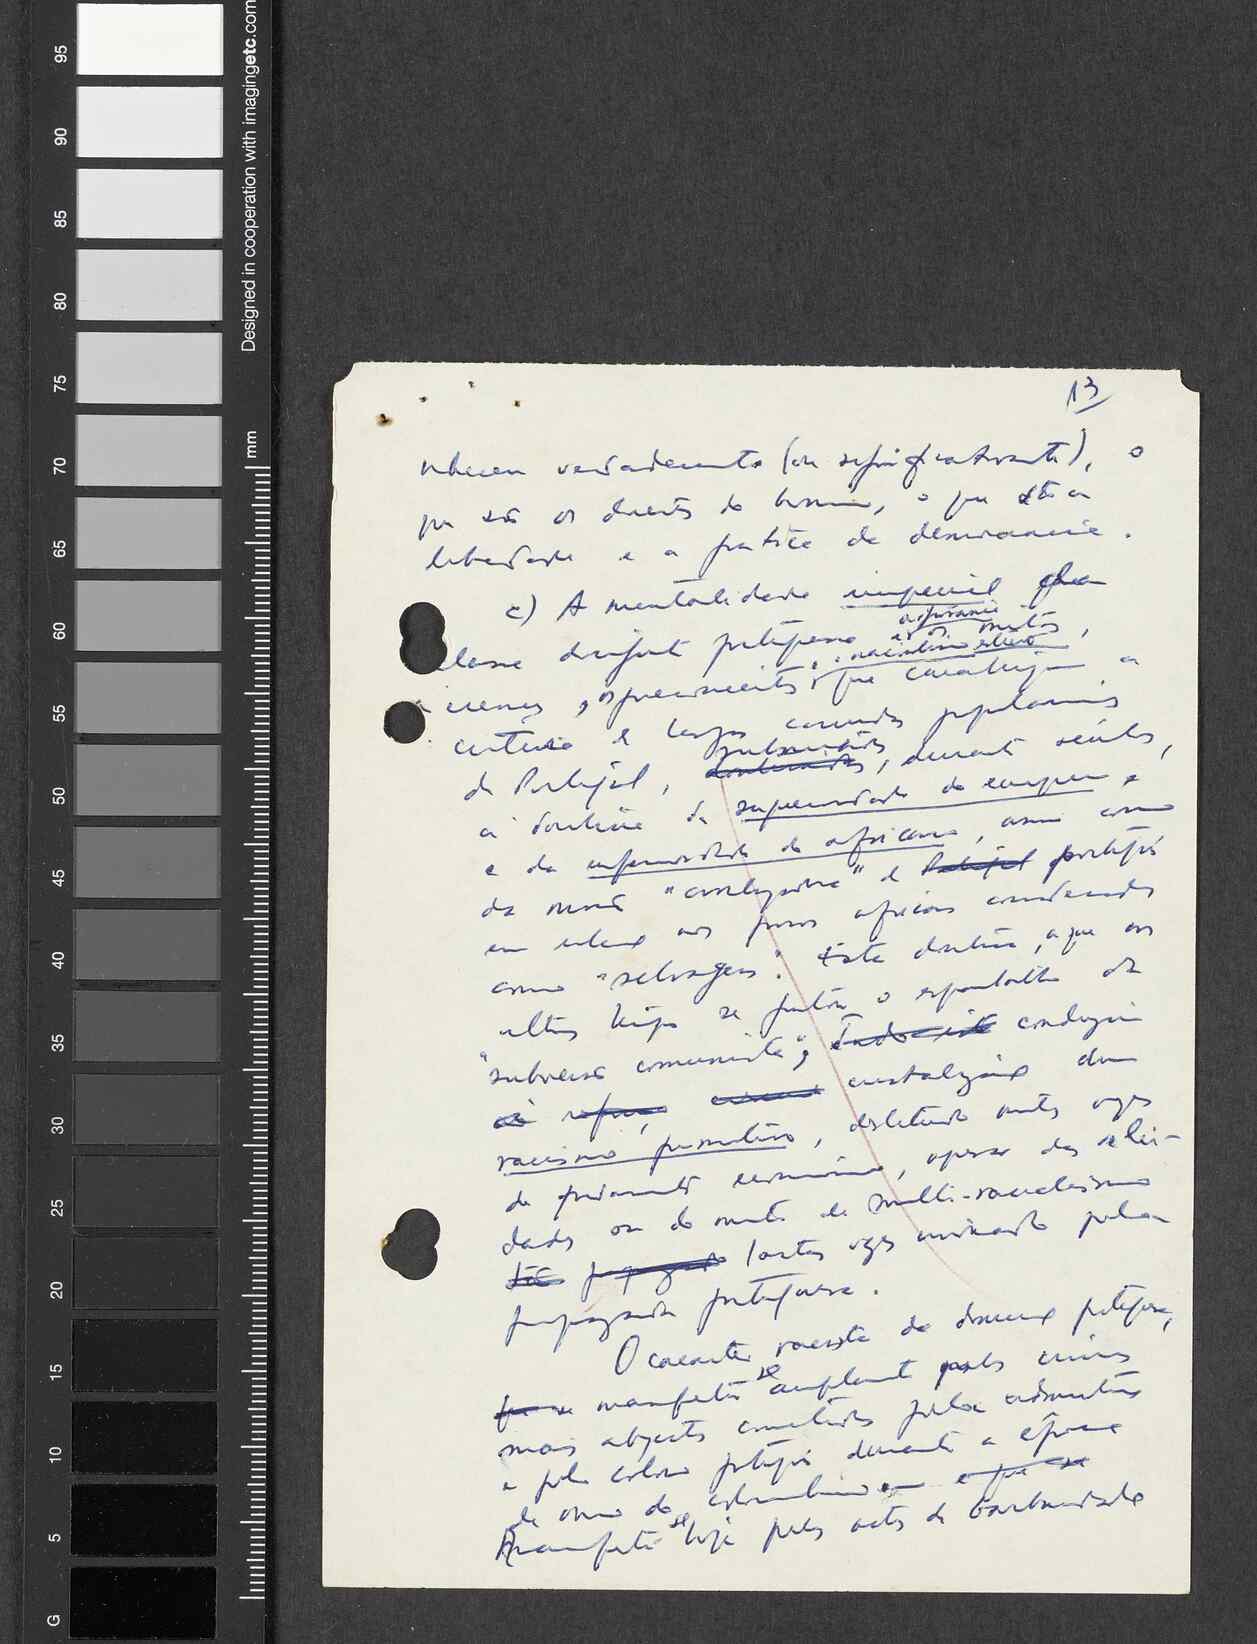 95
90
85
80
75
70
65
60
55
50
45
40
35
30
25
20
15
10
5
G
Designed in cooperation with imagingetc.com
mm
13
verdadeiramente (ou significativamente), o
que são os direitos do homem, o que é a
liberdade e a prática da democracia.
c) A mentalidade imperial da
classe dirigente portuguesa
os mitos,
as crenças, os preconceitos que caracterizam a
cultura e largas camadas populacionais
de Portugal, submetidas, durante séculos,
à doutrina da superioridade do europeu e
e da inferioridade do africano, assim como
da missão "civilizadora" do Portugal português
em relação aos povos africanos considerados
como "selvagens". Esta doutrina, a que nos
últimos tempos se juntou o espantalho da
"subversão comunista", tudo isto conduziu
à cristalização dum
racismo primitivo, muitas vezes
de fundamento económico, apesar das
dades ou do mito do multi-racialismo
tantas vezes pela
propaganda portuguesa.
O carácter racista do domínio português,
que se manifestou se amplamente pelos crimes
mais abjectos cometidos pelas autoridades
e pelo colono português durante a época
de ouro do colonialismo e que se
manifesta-se hoje pelos actos de barbaridade